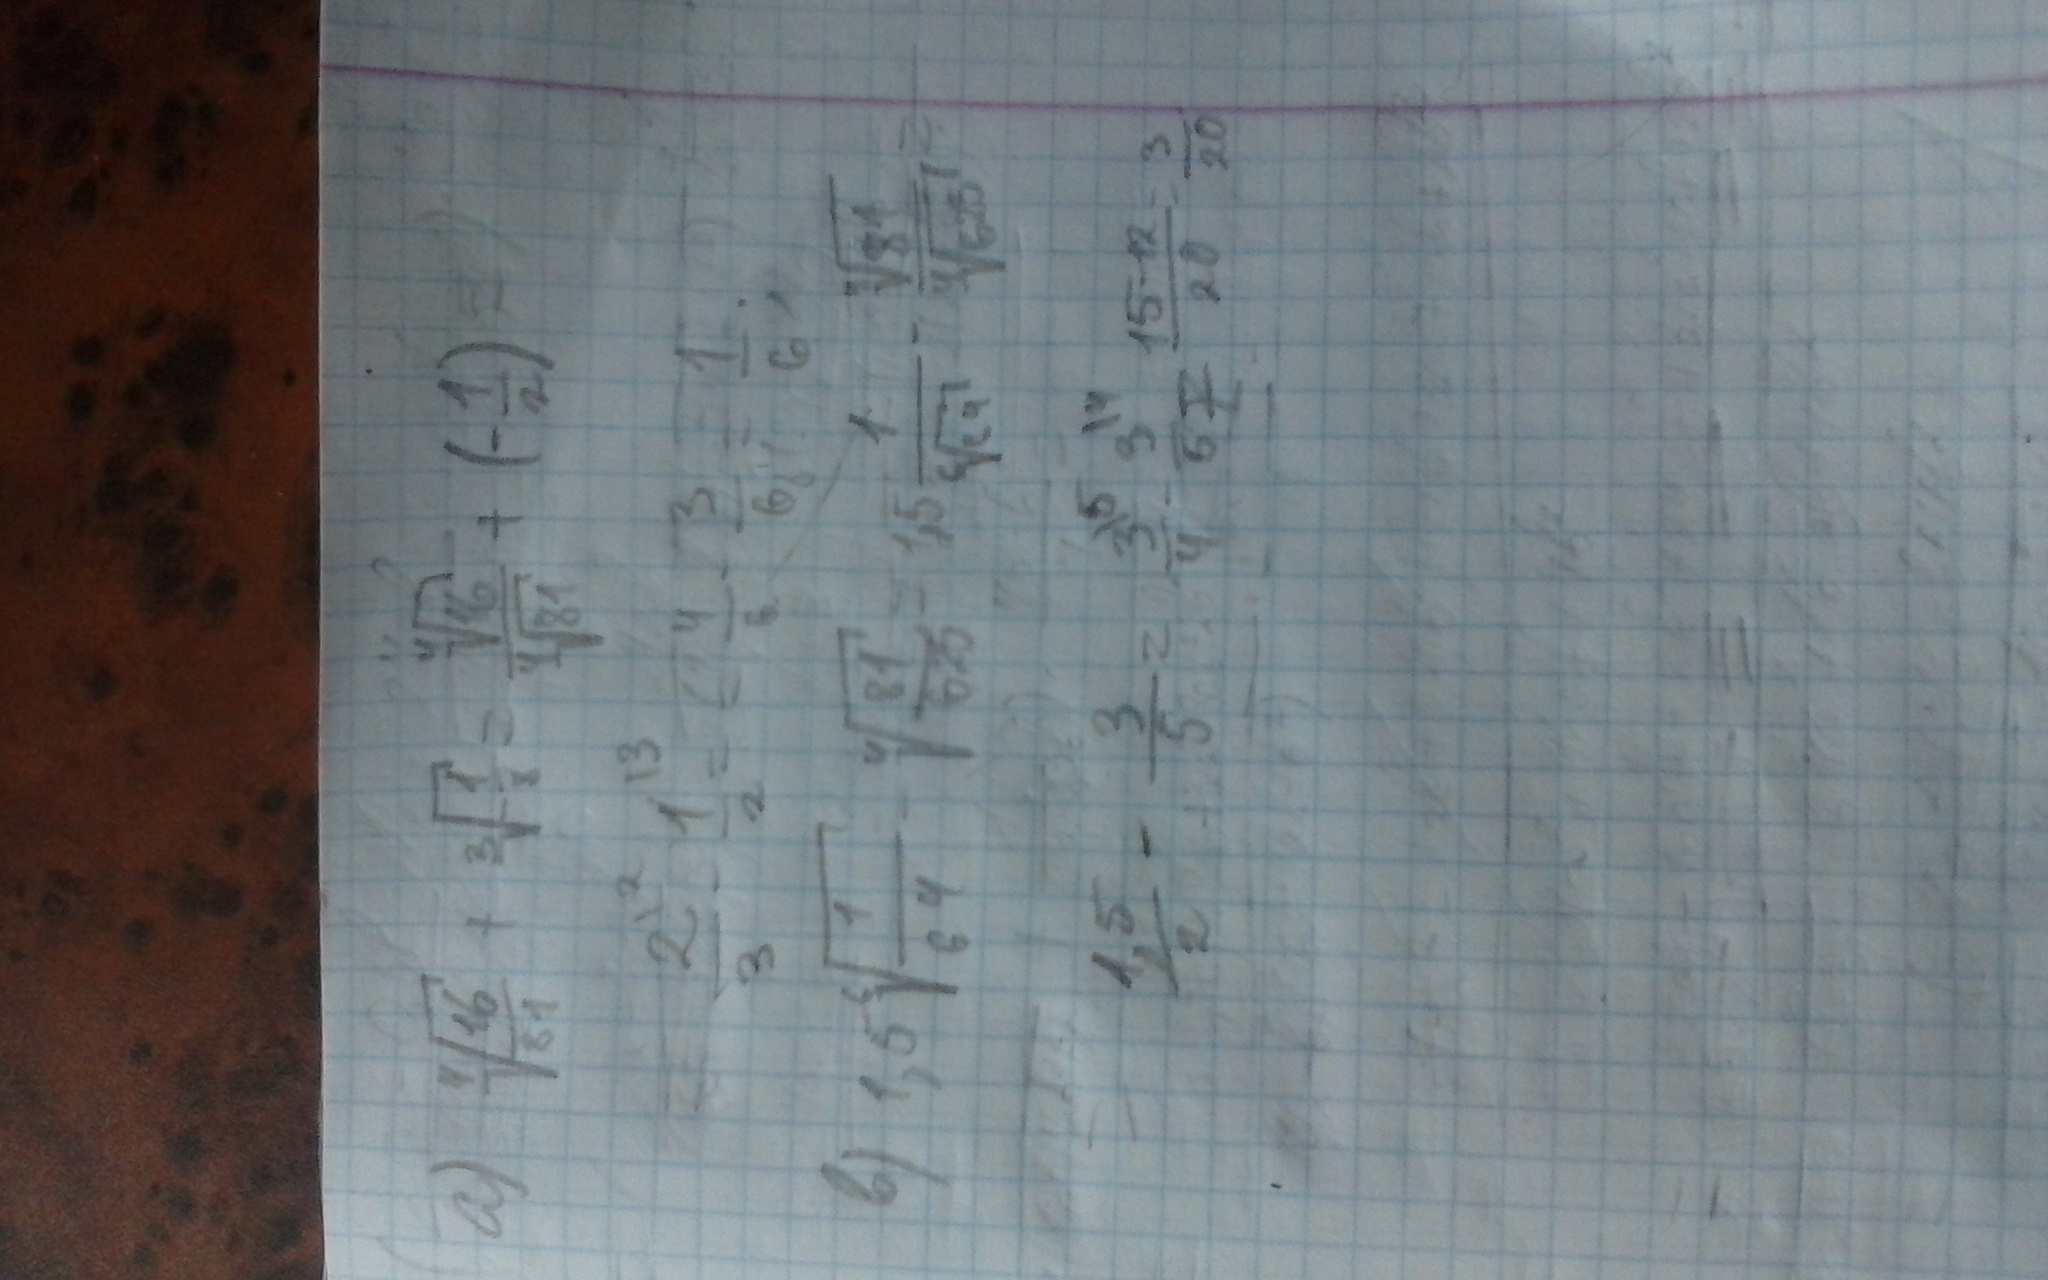 а) ⁴√(16/81) + ³√(1/8) = ⁴√16/⁴√81 + (-1/2) =
= 2\²/3 - 1\³/2 = 4/6 - 3/6 = 1/6;
в) 1,5 ⁶√(1/64) - ⁴√(81/625) = 1,5 1/⁶√64 - ⁴√81/⁴√625 =
= 1,5/2 - 3/5 = 3\⁵/4 - 3\⁴/5 = 15-12/20 = 3/20